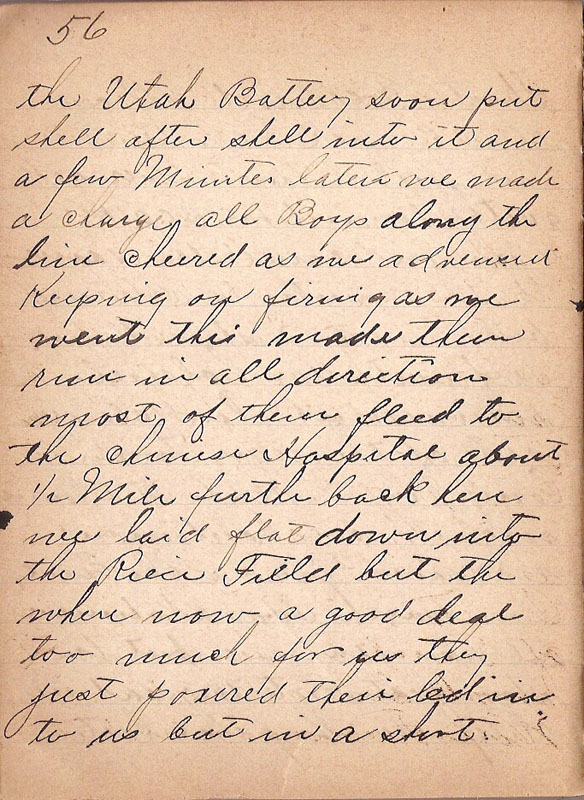 56
the Utah Battery soon put
shell after shell into it and
a few Minutes later we made
a charge all Boys along the
line cheered as we advenced
Keeping on firing as we
went this made them
run in all direction
most of them fleed to
the chinese Hospital about
1/2 Mile furth back here
we laid flat down into
the Riece Field but the
where now a good deal
too much for us they
just powered their led in
to us but in a short